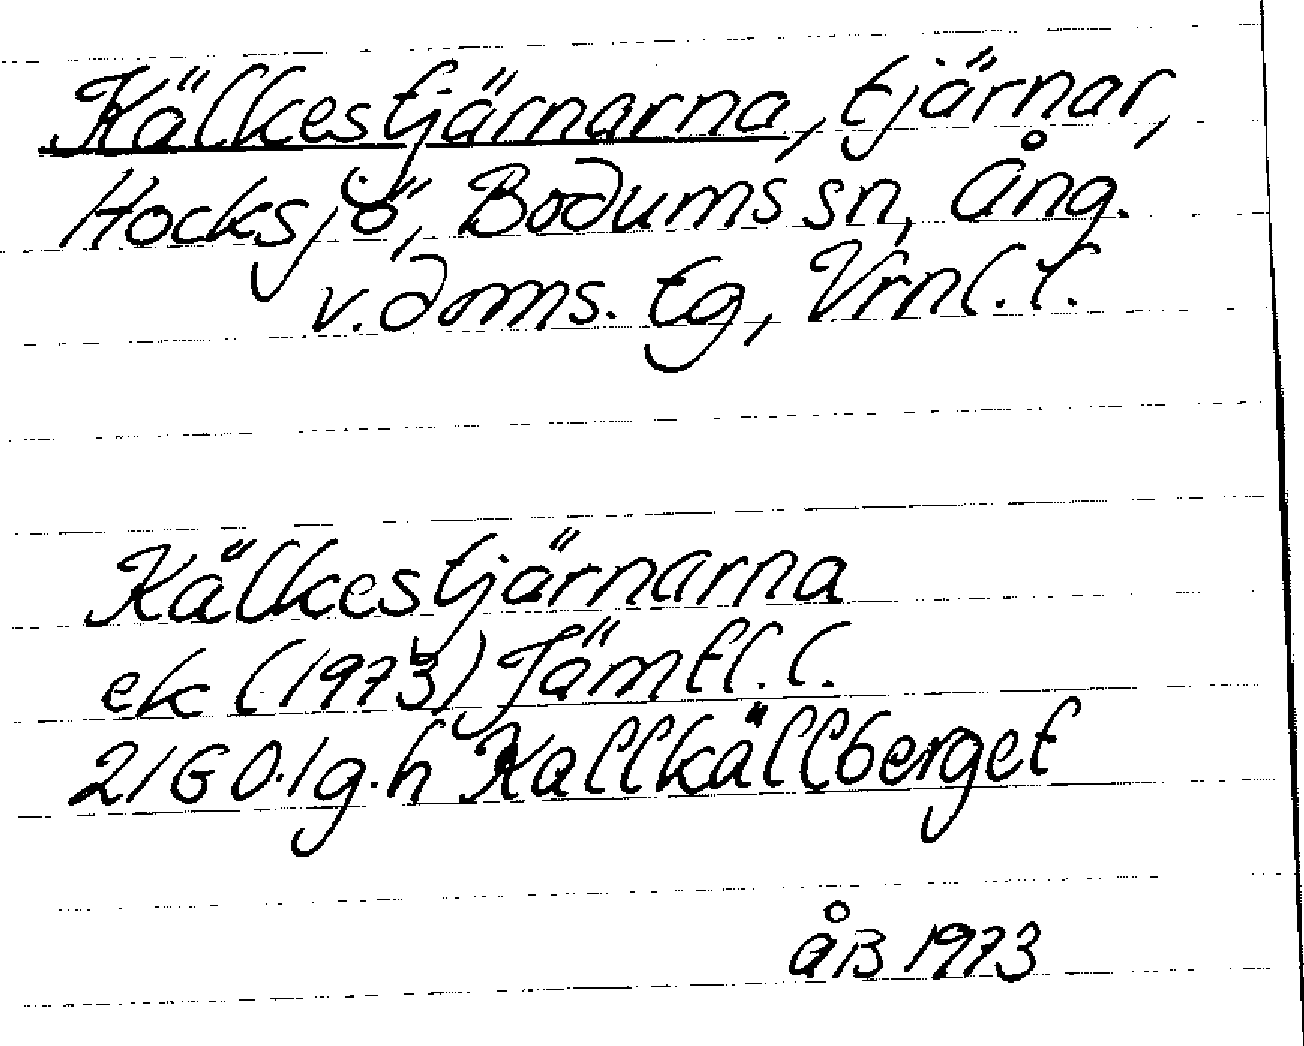 Kälkestjärnarna, tjärnar,
Hocksjö, Bodums sn, Ång.
v. doms. tg, Vrnl. l.
Kälkestjärnarna
ek (1973) Jämtl. l.
21G 0.1g.h Kallkällberget
åB 1973